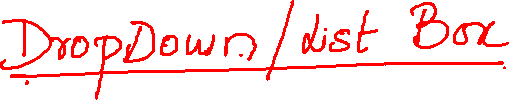 DropDown/List Box